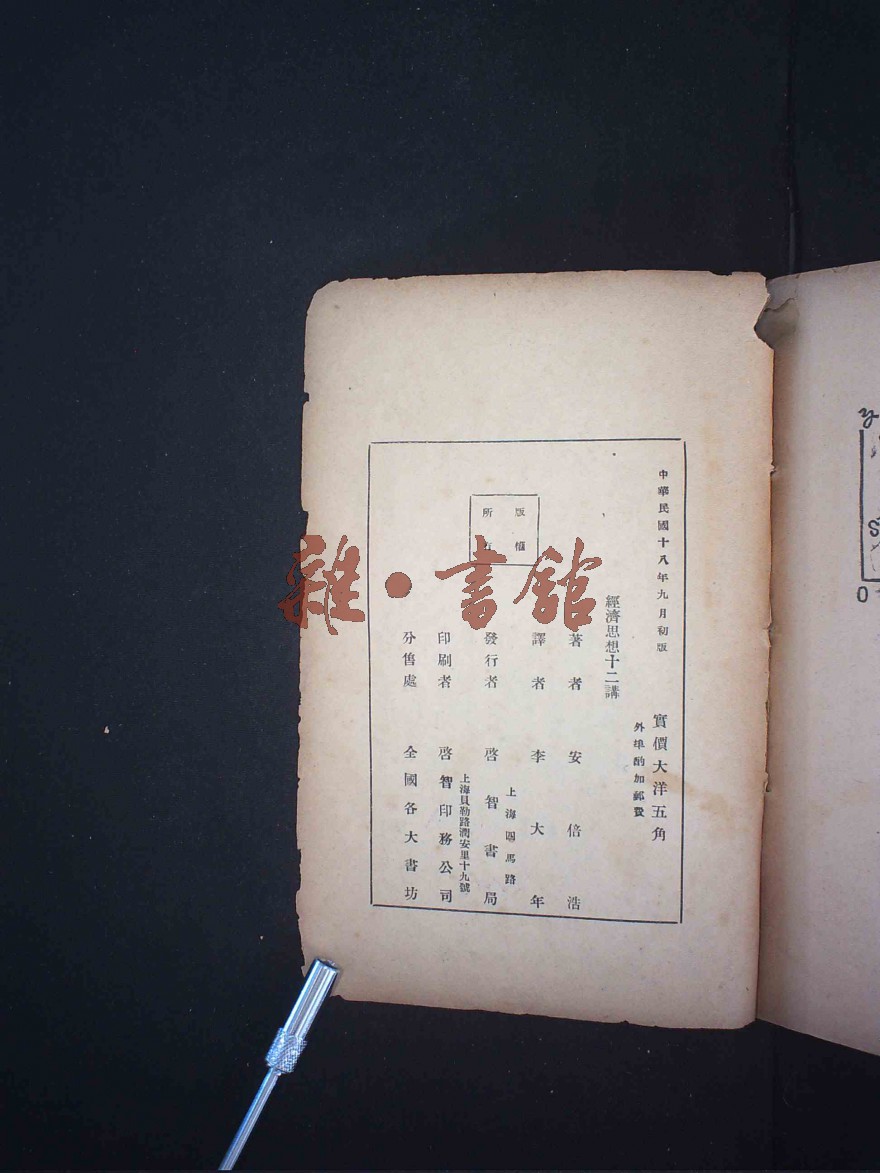 中華民國十八年九月初版
實價大洋五角
外埠酌加郵費
經濟思想十二講
著者 安倍浩
譯者 李大年
上海四馬路
發行者 啓智書局
上海貝勒路潤安里十九號
印刷者 啓智印務公司
分售處 全國各大書坊
版權
所有
雜·書館
y
S
0